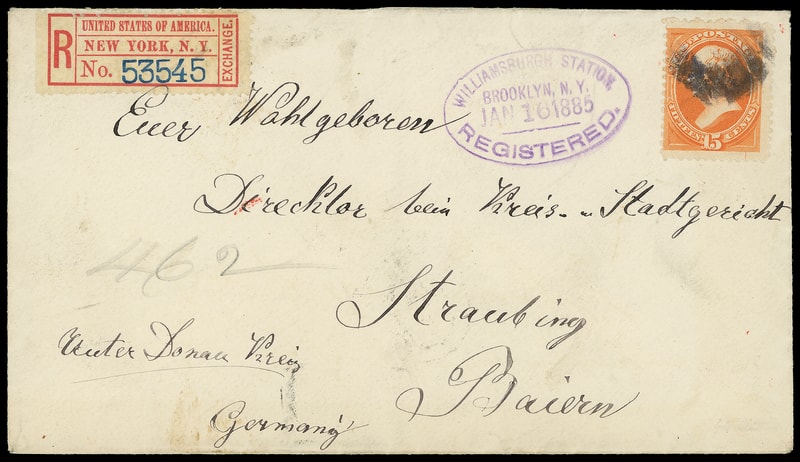 R
UNITED STATES OF AMERICA.
NEW YORK, N. Y.
No. 53545
EXCHANGE.
WILLIAMSBURGH STATION,
BROOKLYN, N. Y.
JAN 16 1885
REGISTERED.
U.S. POSTAGE
FIFTEEN 15 CENTS
Euer Wohlgeboren
Direcktor beim Kreis- u Stadtgericht
462
Straubing
Unter Donau Kreis
Baiern
Germany